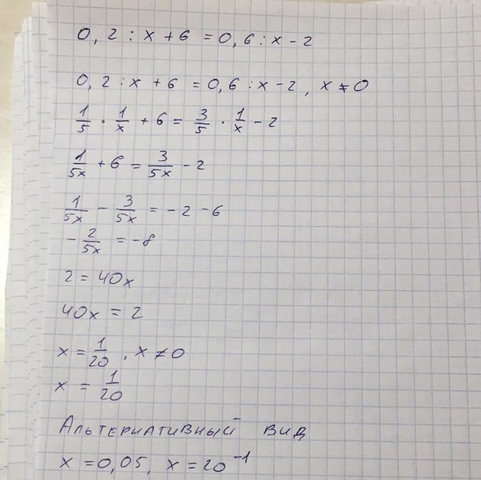 0,2 : x + 6 = 0,6 : x - 2
0,2 : x + 6 = 0,6 : x - 2, x ≠ 0
1/5 · 1/x + 6 = 3/5 · 1/x - 2
1/5x + 6 = 3/5x - 2
1/5x - 3/5x = -2 - 6
-2/5x = -8
2 = 40x
40x = 2
x = 1/20, x ≠ 0
x = 1/20
Альтернативный вид
x = 0,05, x = 20⁻¹